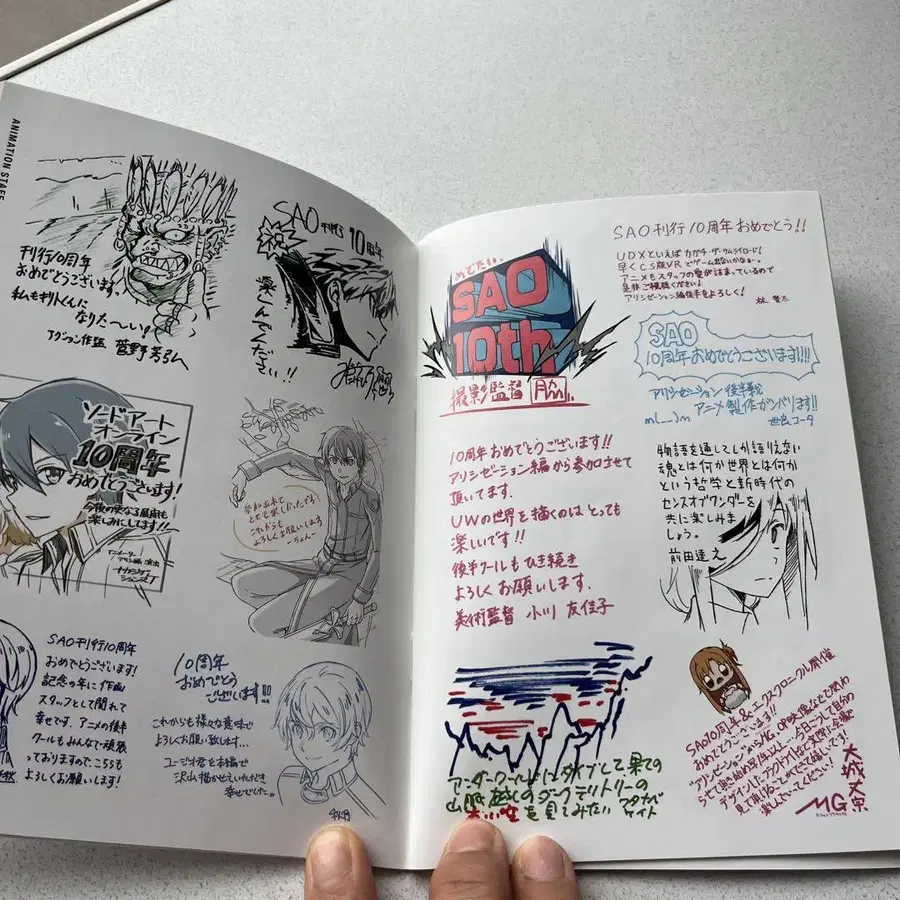 ANIMATION STAFF
刊行10周年
おめでとうございます。
私もキリトくんに
なりた〜い!
アクション作監 菅野芳弘
SAO刊行 10周年
祝
楽しんでください!!
ソードアート
オンライン
10周年
おめでとうございます!
今後の更なる展開も
楽しみにしてます!!
とても楽しかったです
これからも
よろしくお願いします
SAO刊行10周年
おめでとうございます!
記念の年に作画
スタッフとして関れて
幸せです。アニメの後半
クールもみんなで頑張
っておりますので、こちらも
よろしくお願いします!
10周年
おめでとう
ございます!!
これからも様々な意味で
よろしくお願い致します…
ユージオ君を本編で
沢山描かせていただき
幸せでした。
めでたい。
SAO
10th
撮影監督 脇
10周年おめでとうございます!!
アリシゼーション編から参加させて
頂いてます。
UWの世界を描くのはとっても
楽しいです!!
後半クールもひき続き
よろしくお願いします。
美術監督 小川 友佳子
アンダーワールドにダイブして果ての
山脈越しのダークテリトリーの
赤い空を見てみたい ワタナベ
ケイト
SAO刊行10周年おめでとう!!
早くCS版VRでゲーム出ないかなぁ〜
アニメもスタッフの愛が詰まっているので
是非ご視聴ください!
アリシゼーション編後半をよろしく!
SAO
10周年おめでとうございます!!!
アリシゼーション後半戦
アニメ製作ガンバります!!
m(_ _)m 世良コータ
物語を通してしか語りえない
魂とは何か世界とは何か
という哲学と新時代の
センスオブワンダーを
共に楽しみま
しょう。
前田達之
SAO10周年&エクスクロニクル開催
おめでとうございます!!
MG